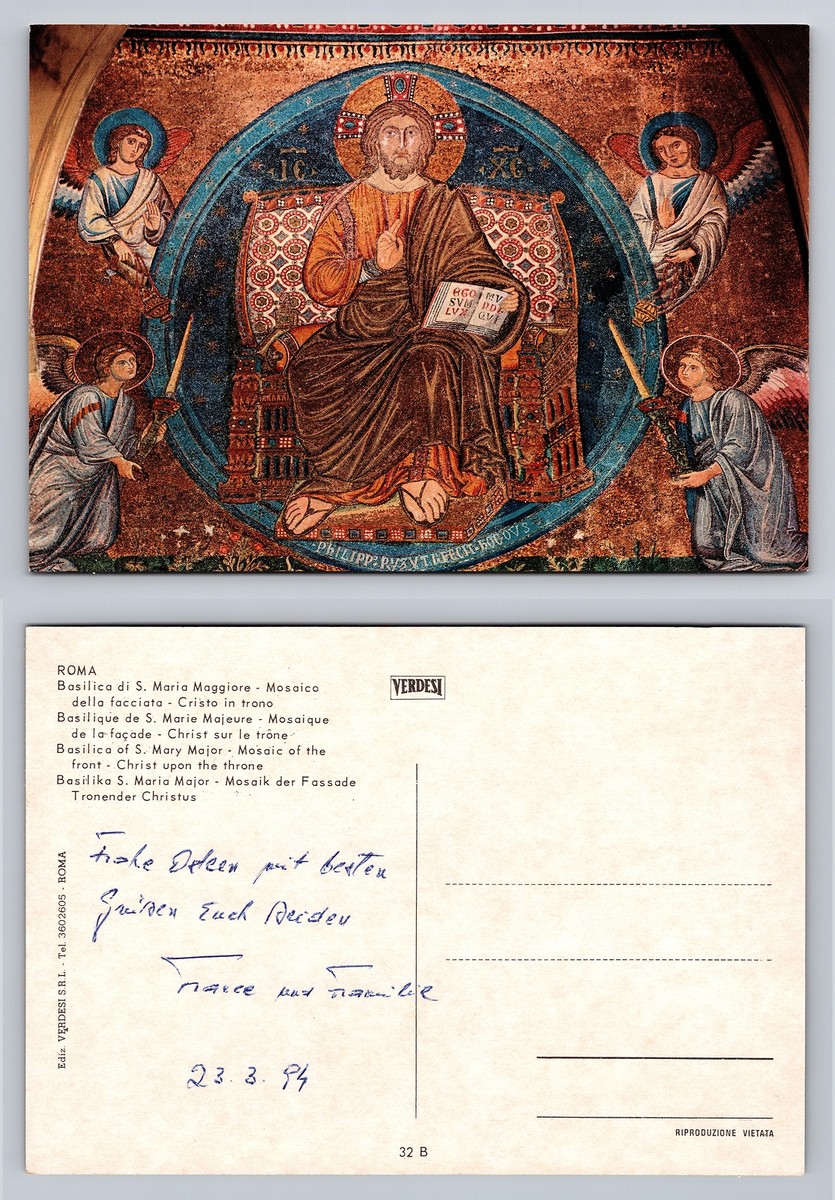 IC XC
EGO SUM LUX
MVNDI QVI
PHILIPP: RUSUTI: FECIT HOC OPUS
ROMA
Basilica di S. Maria Maggiore - Mosaico
della facciata - Cristo in trono
Basilique de S. Marie Majeure - Mosaique
de la façade - Christ sur le trône
Basilica of S. Mary Major - Mosaic of the
front - Christ upon the throne
Basilika S. Maria Major - Mosaik der Fassade
Tronender Christus
VERDESI
Frohe Ostern mit besten
Grüßen Euch Beiden
und Familie
23.3.94
Ediz. VERDESI S.R.L. - Tel. 3602605 - ROMA
RIPRODUZIONE VIETATA
32 B